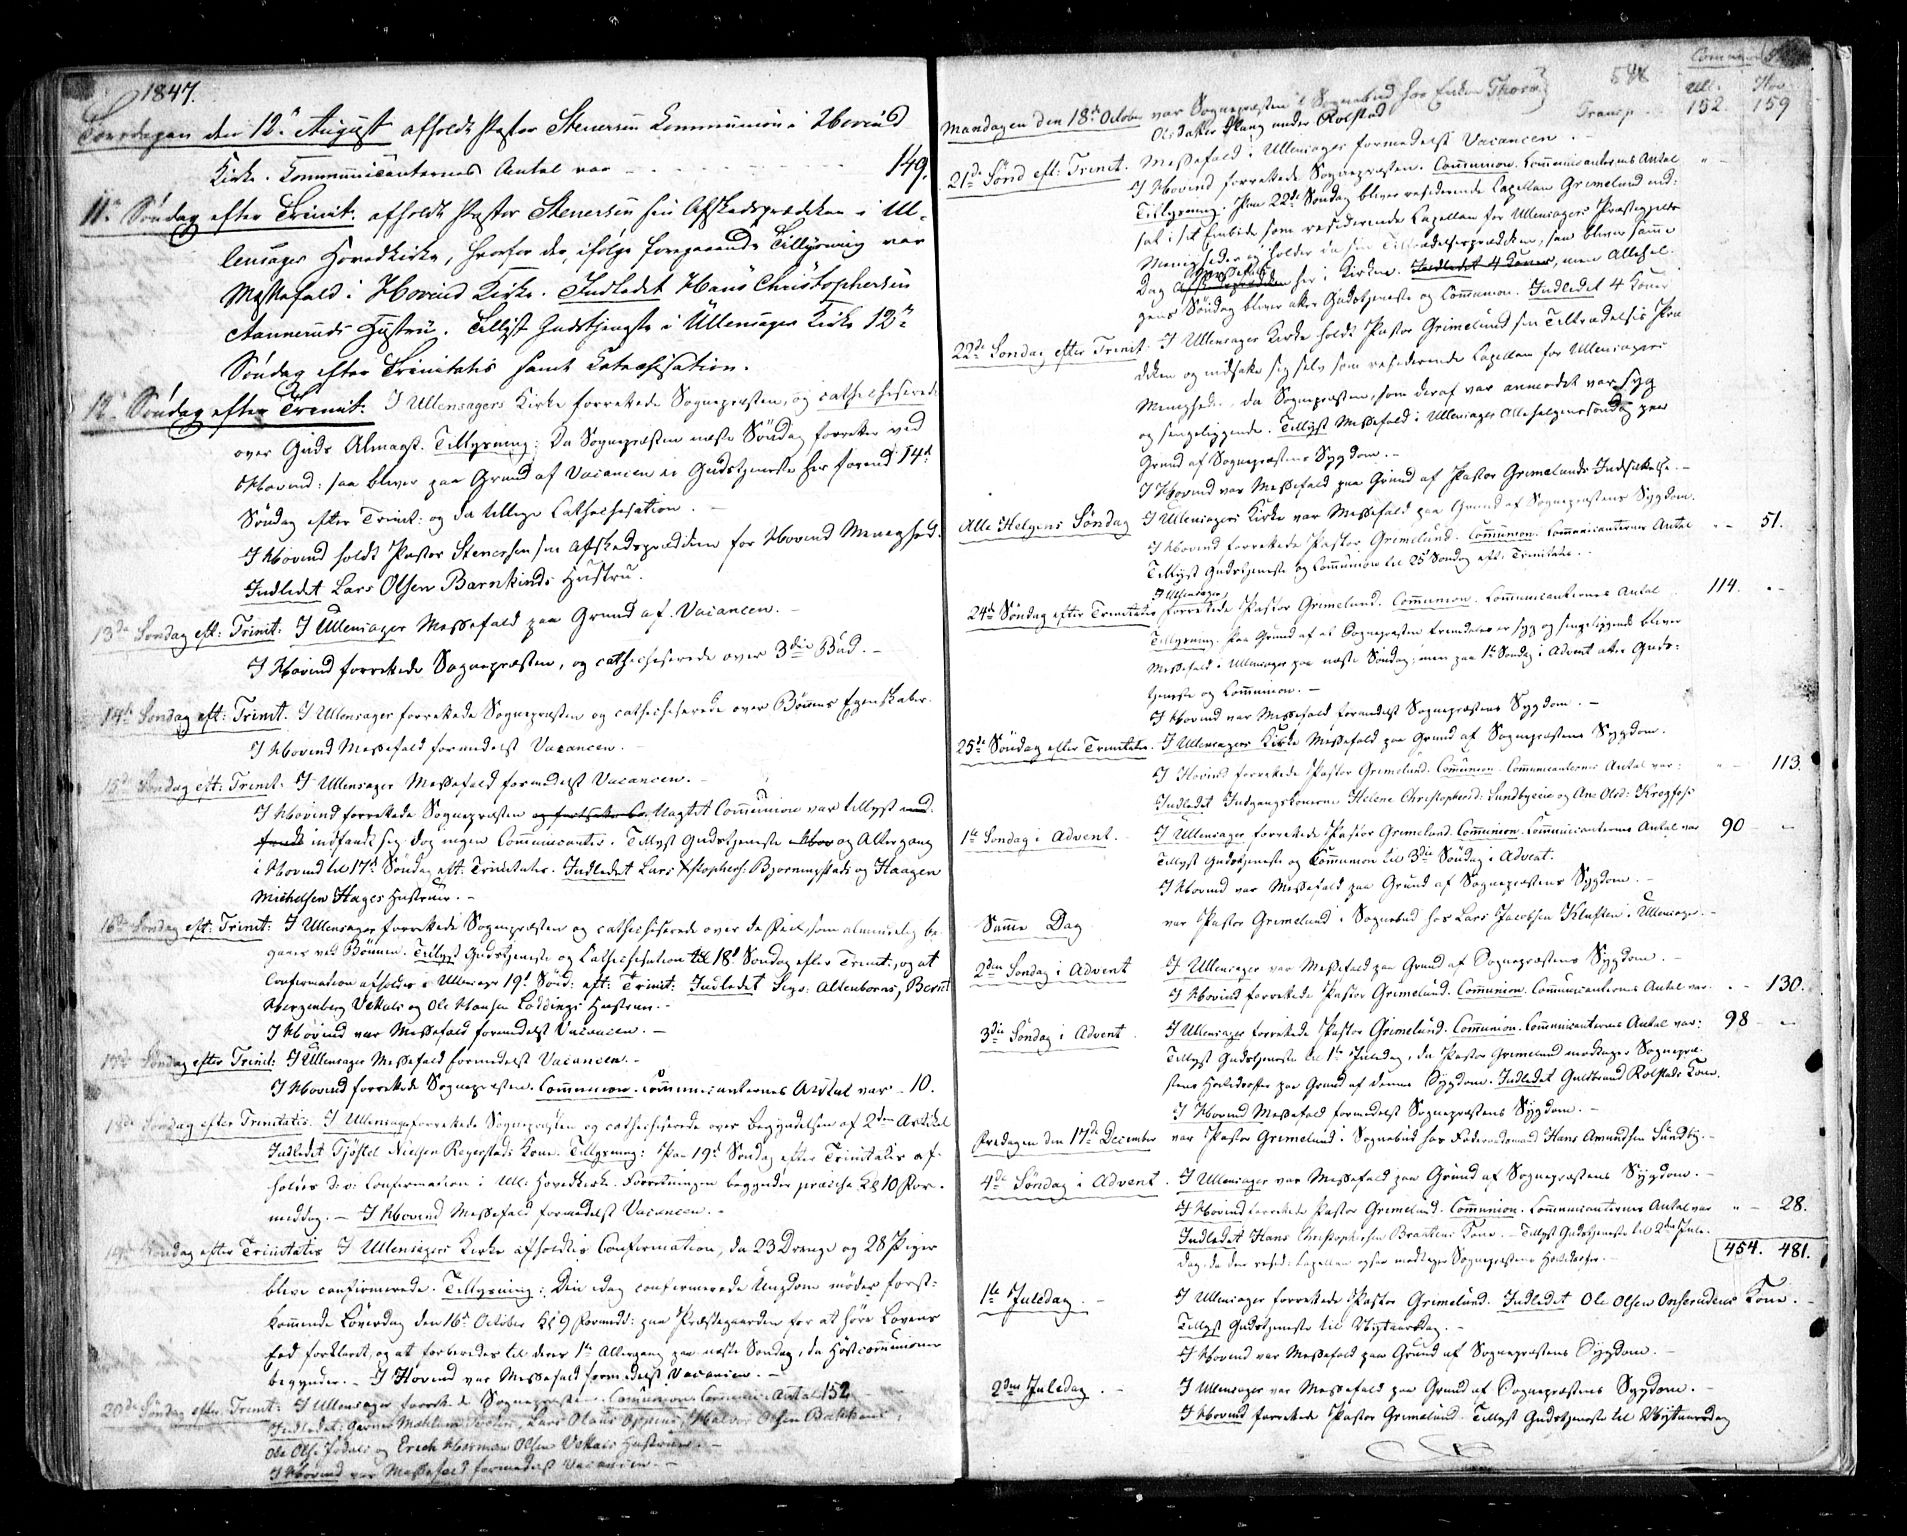 1847.
Torsdagen den 12te August afholdt Pastor Stenersen Communion i Hovind
Kirke. Communicanternes Antal var 149.
11te Søndag efter Trinit: afholdt Pastor Stenersen sin Afskedsprædiken i Ul-
lensager Hovedkirke, hvorfor der, ifølge foregaaende Tillysning var
Messefald i Hovind Kirke. Indledet Hans Christophersen
Aanneruds Hustru. Tillyst Gudstjeneste i Ullensager Kirke 12te
Søndag efter Trinitatis samt Katechisation.
12te Søndag efter Trinit: I Ullensagers Kirke forrettede Sognepræsten, og cathechiserede
over Guds Almagt. Tillysning: Da Sognepræsten næste Søndag forretter ved
Hovind: saa bliver paa Grund af Vacancen ei Gudstjeneste her førend 14de
Søndag efter Trinit: og da tillige Cathechisation.
I Hovind holdt Pastor Stenersen sin Afskedsprædiken for Hovind Menighed.
Indledet Lars Olsen Barnkinds Hustru.
13de Søndag eft: Trinit: I Ullensager Messefald paa Grund af Vacancen.
I Hovind forrettede Sognepræsten, og cathechiserede over 3die Bud.
14de Søndag eft: Trinit. I Ullensager forrettede Sognepræsten og cathechiserede over Bønnens Egenskaber.
I Hovind Messefald formedelst Vacancen.
15de Søndag eft: Trinit. I Ullensager Messefald formedelst Vacancen.
I Hovind forrettede Sognepræsten Uagtet Communion var tillyst
indfandt sig dog ingen Communicanter. Tillyst Gudstjeneste og Altergang
i Hovind til 17de Søndag eft: Trinitatis. Indledet Lars Xstophers: Bjørningstads og Haagen
Michelsen Hages Hustruer.
16de Søndag eft: Trinit: I Ullensager forrettede Sognepræsten og cathechiserede over de som almindelig be-
gaaes ved Bønnen. Tillyst Gudstjeneste og Cathechisation til 18de Søndag efter Trinit:, og at
Confirmation afholdes i Ullensager 19de Sønd: eft: Trinit: Indledet Altenborns, Bernt
Bergenberg Vekals og Ole Hansen Løddings Hustruer.
I Hovind var Messefald formedelst Vacancen.
17de Søndag efter Trinit: I Ullensager Messefald formedelst Vacancen.
I Hovind forrettede Sognepræsten. Communion. Communicanternes Antal var 10.
18de Søndag efter Trinitatis. I Ullensager forrettede Sognepræsten og cathechiserede over Begyndelsen af 2den Artikel
Indledet Tjøstel Nielsen Reyerstads Kone. Tillysning: Paa 19de Søndag efter Trinitatis af-
holdes d: v: Confirmation i Ull: Hovedkirke. Forretningen begynder præcise Kl 10 For-
middag. I Hovind Messefald formedelst Vacancen.
19de Søndag efter Trinitatis I Ullensagers Kirke afholdtes Confirmation, da 23 Drenge og 28 Piger
bleve confirmerede. Tillysning: Den idag confirmerede Ungdom møder først-
kommende Løverdag den 16de October Kl 9 Formidd: paa Præstegaarden for at høre Lovens
Eed forklaret, og at forberedes til deres 1te Altergang paa næste Søndag, da Høstcommunionen
begynder. I Hovind var Messefald formedelst Vacancen.
20de Søndag efter Trinit: I Ullensager forrettede Sognepræsten. Communion. Communic: Antal 152
Indledet: Lars Olsens Halvor Olsen
Ole Ols: og Erich Herman Olsen Vekals Hustruer.
I Hovind var Messefald formedelst Vacancen.
548
Ull. Hov
Mandagen den 18de October var Sognepræsten i Sognebud hos Enken Thore
Olsdatter Plang under Rolstad Transp. 152. 159
21de Sønd eft: Trinit. Messefald i Ullensager formedelst Vacancen.
I Hovind forrettede Sognepræsten. Communion. Communicanternes Antal
Tillysning. Paa 22de Søndag bliver residerende Capellan Grimelund ind-
sat i sit Embede som residerende Capellan for Ullensagers Præstegjelds
Menigheder og holder da sin Tiltrædelsesprædiken, saa bliver samme
Dag Messefald her i Kirken. Indledet 4 Koner, men Allehel-
gens Søndag bliver atter Gudstjeneste og Communion. Indledet 4 Koner
22de Søndag efter Trinit. I Ullensager Kirke holdt Pastor Grimelund sin Tiltrædelses Præ-
diken og indsatte sig selv som residerende Capellan for Ullensagers
Menighed, da Sognepræsten, som deraf var anmodet var syg
og sengeliggende. Tillyst Messefald i Ullensager Allehelgenssøndag paa
Grund af Sognepræstens Sygdom.
I Hovind var Messefald paa Grund af Pastor Grimelunds Indsættelse.
Alle Helgens Søndag I Ullensagers Kirke var Messefald paa Grund af Sognepræstens Sygdom.
I Hovind forrettede Pastor Grimelund. Communion. Communicanternes Antal 51.
Tillyst Gudstjeneste og Communion til 25de Søndag eft: Trinitatis.
I Ullensager,
24de Søndag efter Trinitatis forrettede Pastor Grimelund. Communion. Communicanternes Antal 114.
Tillysning. Paa Grund af at Sognepræsten fremdeles er syg og sengeliggende bliver
Messefald i Ullensager paa næste Søndag; men paa 1te Søndag i Advent atter Guds-
tjeneste og Communion.
I Hovind var Messefald formedelst Sognepræstens Sygdom.
25de Søndag efter Trinitatis. I Ullensagers Kirke Messefald paa Grund af Sognepræstens Sygdom.
I Hovind forrettede Pastor Grimelund. Communion. Communicanternes Antal var: 113.
Indledet Indgangskonerne Helene Christophersd: Sundbyeie og An: Olsd: Krogfos:
1te Søndag i Advent. I Ullensager forrettede Pastor Grimelund. Communion. Communicanternes Antal var 90
Tillyst Gudstjeneste og Communion til 3die Søndag i Advent.
I Hovind var Messefald paa Grund af Sognepræstens Sygdom.
Samme Dag var Pastor Grimelund i Sognebud hos Lars Jacobsen Kløften i Ullensager.
2den Søndag i Advent I Ullensager var Messefald paa Grund af Sognepræstens Sygdom.
I Hovind forrettede Pastor Grimelund. Communion. Communicanternes Antal var 130.
3die Søndag i Advent. I Ullensager forrettede Pastor Grimelund. Communion. Communicanternes Antal var: 98
Tillyst Gudstjeneste til 1te Juledag, da Pastor Grimelund modtager Sognepræ-
stens Høitidsoffer paa Grund af dennes Sygdom. Indledet Guldbrand Rolstads Kone.
I Hovind Messefald formedelst Sognepræstens Sygdom.
Fredagen den 17de December var Pastor Grimelund i Sognebud hos Føderaadsmand Hans Amundsen Sundby.
4de Søndag i Advent. I Ullensager var Messefald paa Grund af Sognepræstens Sygdom.
I Hovind forrettede Pastor Grimelund. Communion. Communicanternes Antal var 28.
Indledet Hans Christophersen Kone. Tillyst Gudstjeneste til 2den Jule-
dag, da den resid: Capellan ogsaa modtager Sognepræstens Høitidsoffer. 454. 481.
1te Juledag. I Ullensager forrettede Pastor Grimelund. Indledet Ole Olsen Onseruds Kone.
Tillyst Gudstjeneste til Nytaarsdag.
I Hovind var Messefald paa Grund af Sognepræstens Sygdom.
2den Juledag. I Ullensager var Messefald paa Grund af Sognepræstens Sygdom.
I Hovind forrettede Pastor Grimelund. Tillyst Gudstjeneste til Nytaarsdag